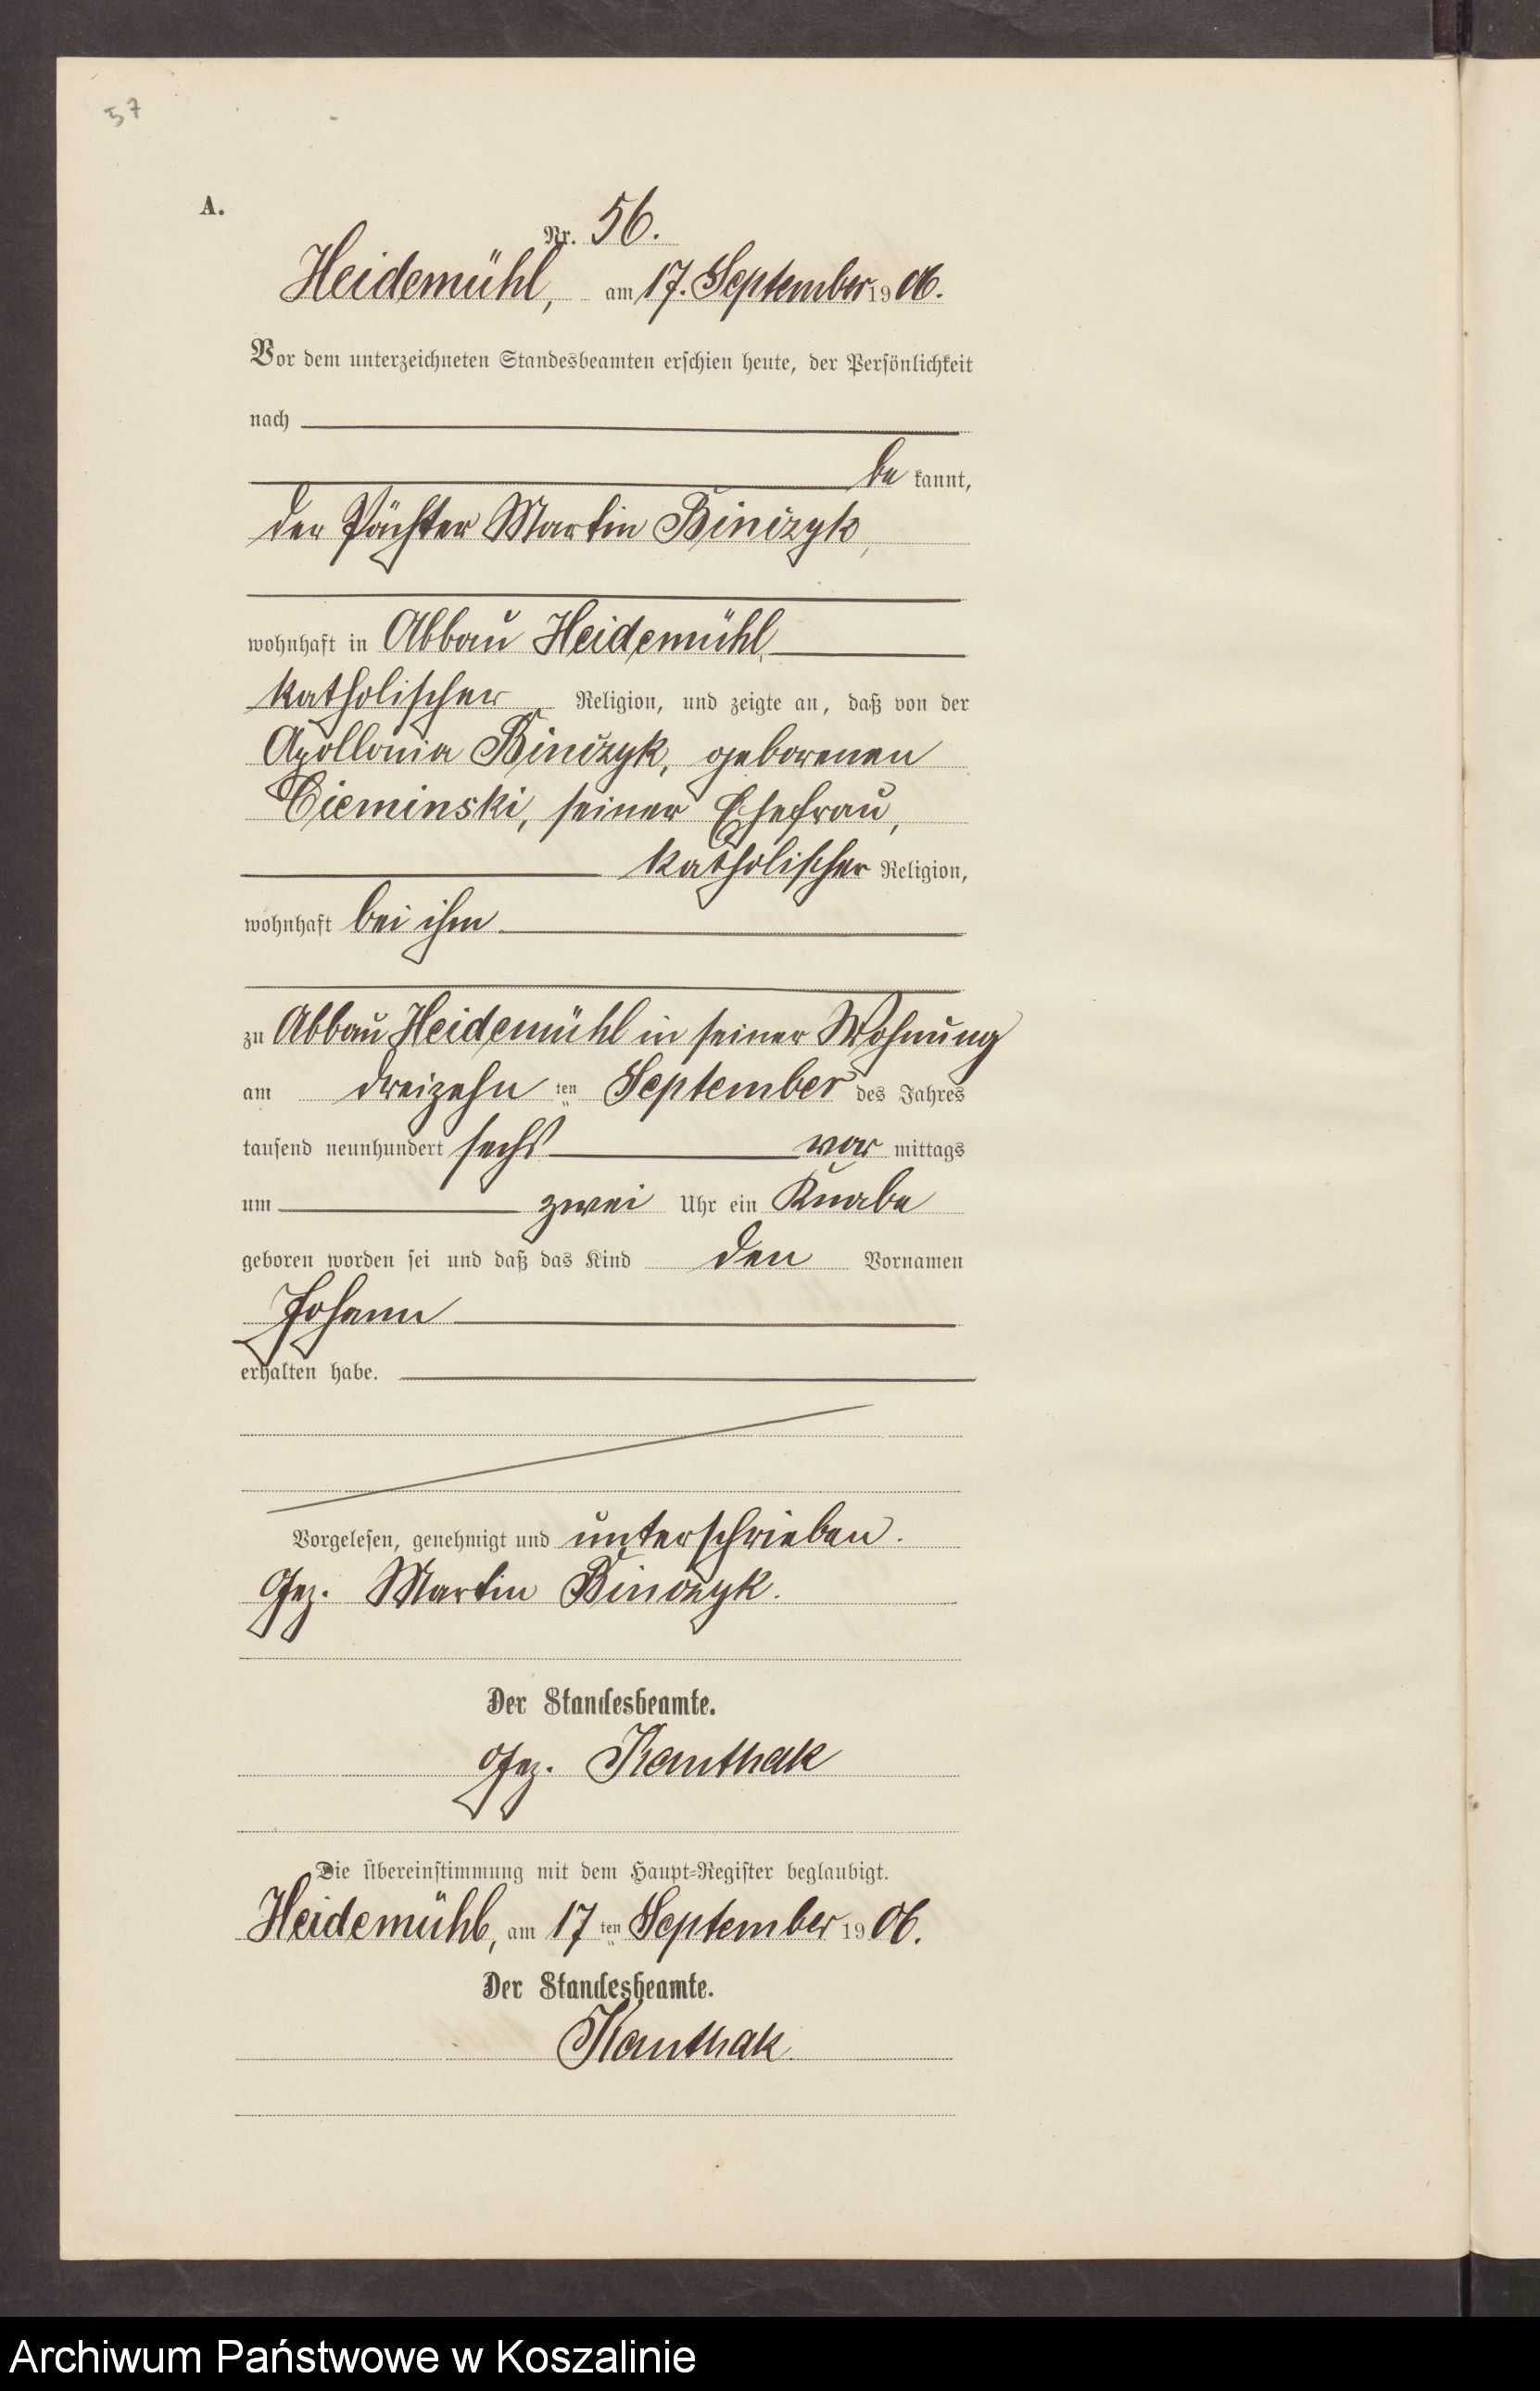 57
A.
Nr. 56.
Heidemühl, am 17. September 1906.
Vor dem unterzeichneten Standesbeamten erschien heute, der Persönlichkeit
nach
be kannt,
der Pächter Martin Binczyk,
wohnhaft in Abbau Heidemühl,
katholischer Religion, und zeigte an, daß von der
Apollonia Binczyk, geborenen
Cieminski, seiner Ehefrau,
katholischer Religion,
wohnhaft bei ihm
zu Abbau Heidemühl in seiner Wohnung
am dreizehn ten September des Jahres
tausend neunhundert sechs vor mittags
um zwei Uhr ein Knabe
geboren worden sei und daß das Kind den Vornamen
Johann
erhalten habe.
Vorgelesen, genehmigt und unterschrieben.
Gez. Martin Binczyk.
Der Standesbeamte.
Gez. Kanthak
Die Übereinstimmung mit dem Haupt-Register beglaubigt.
Heidemühl, am 17 ten September 1906.
Der Standesbeamte.
Kanthak
Archiwum Państwowe w Koszalinie